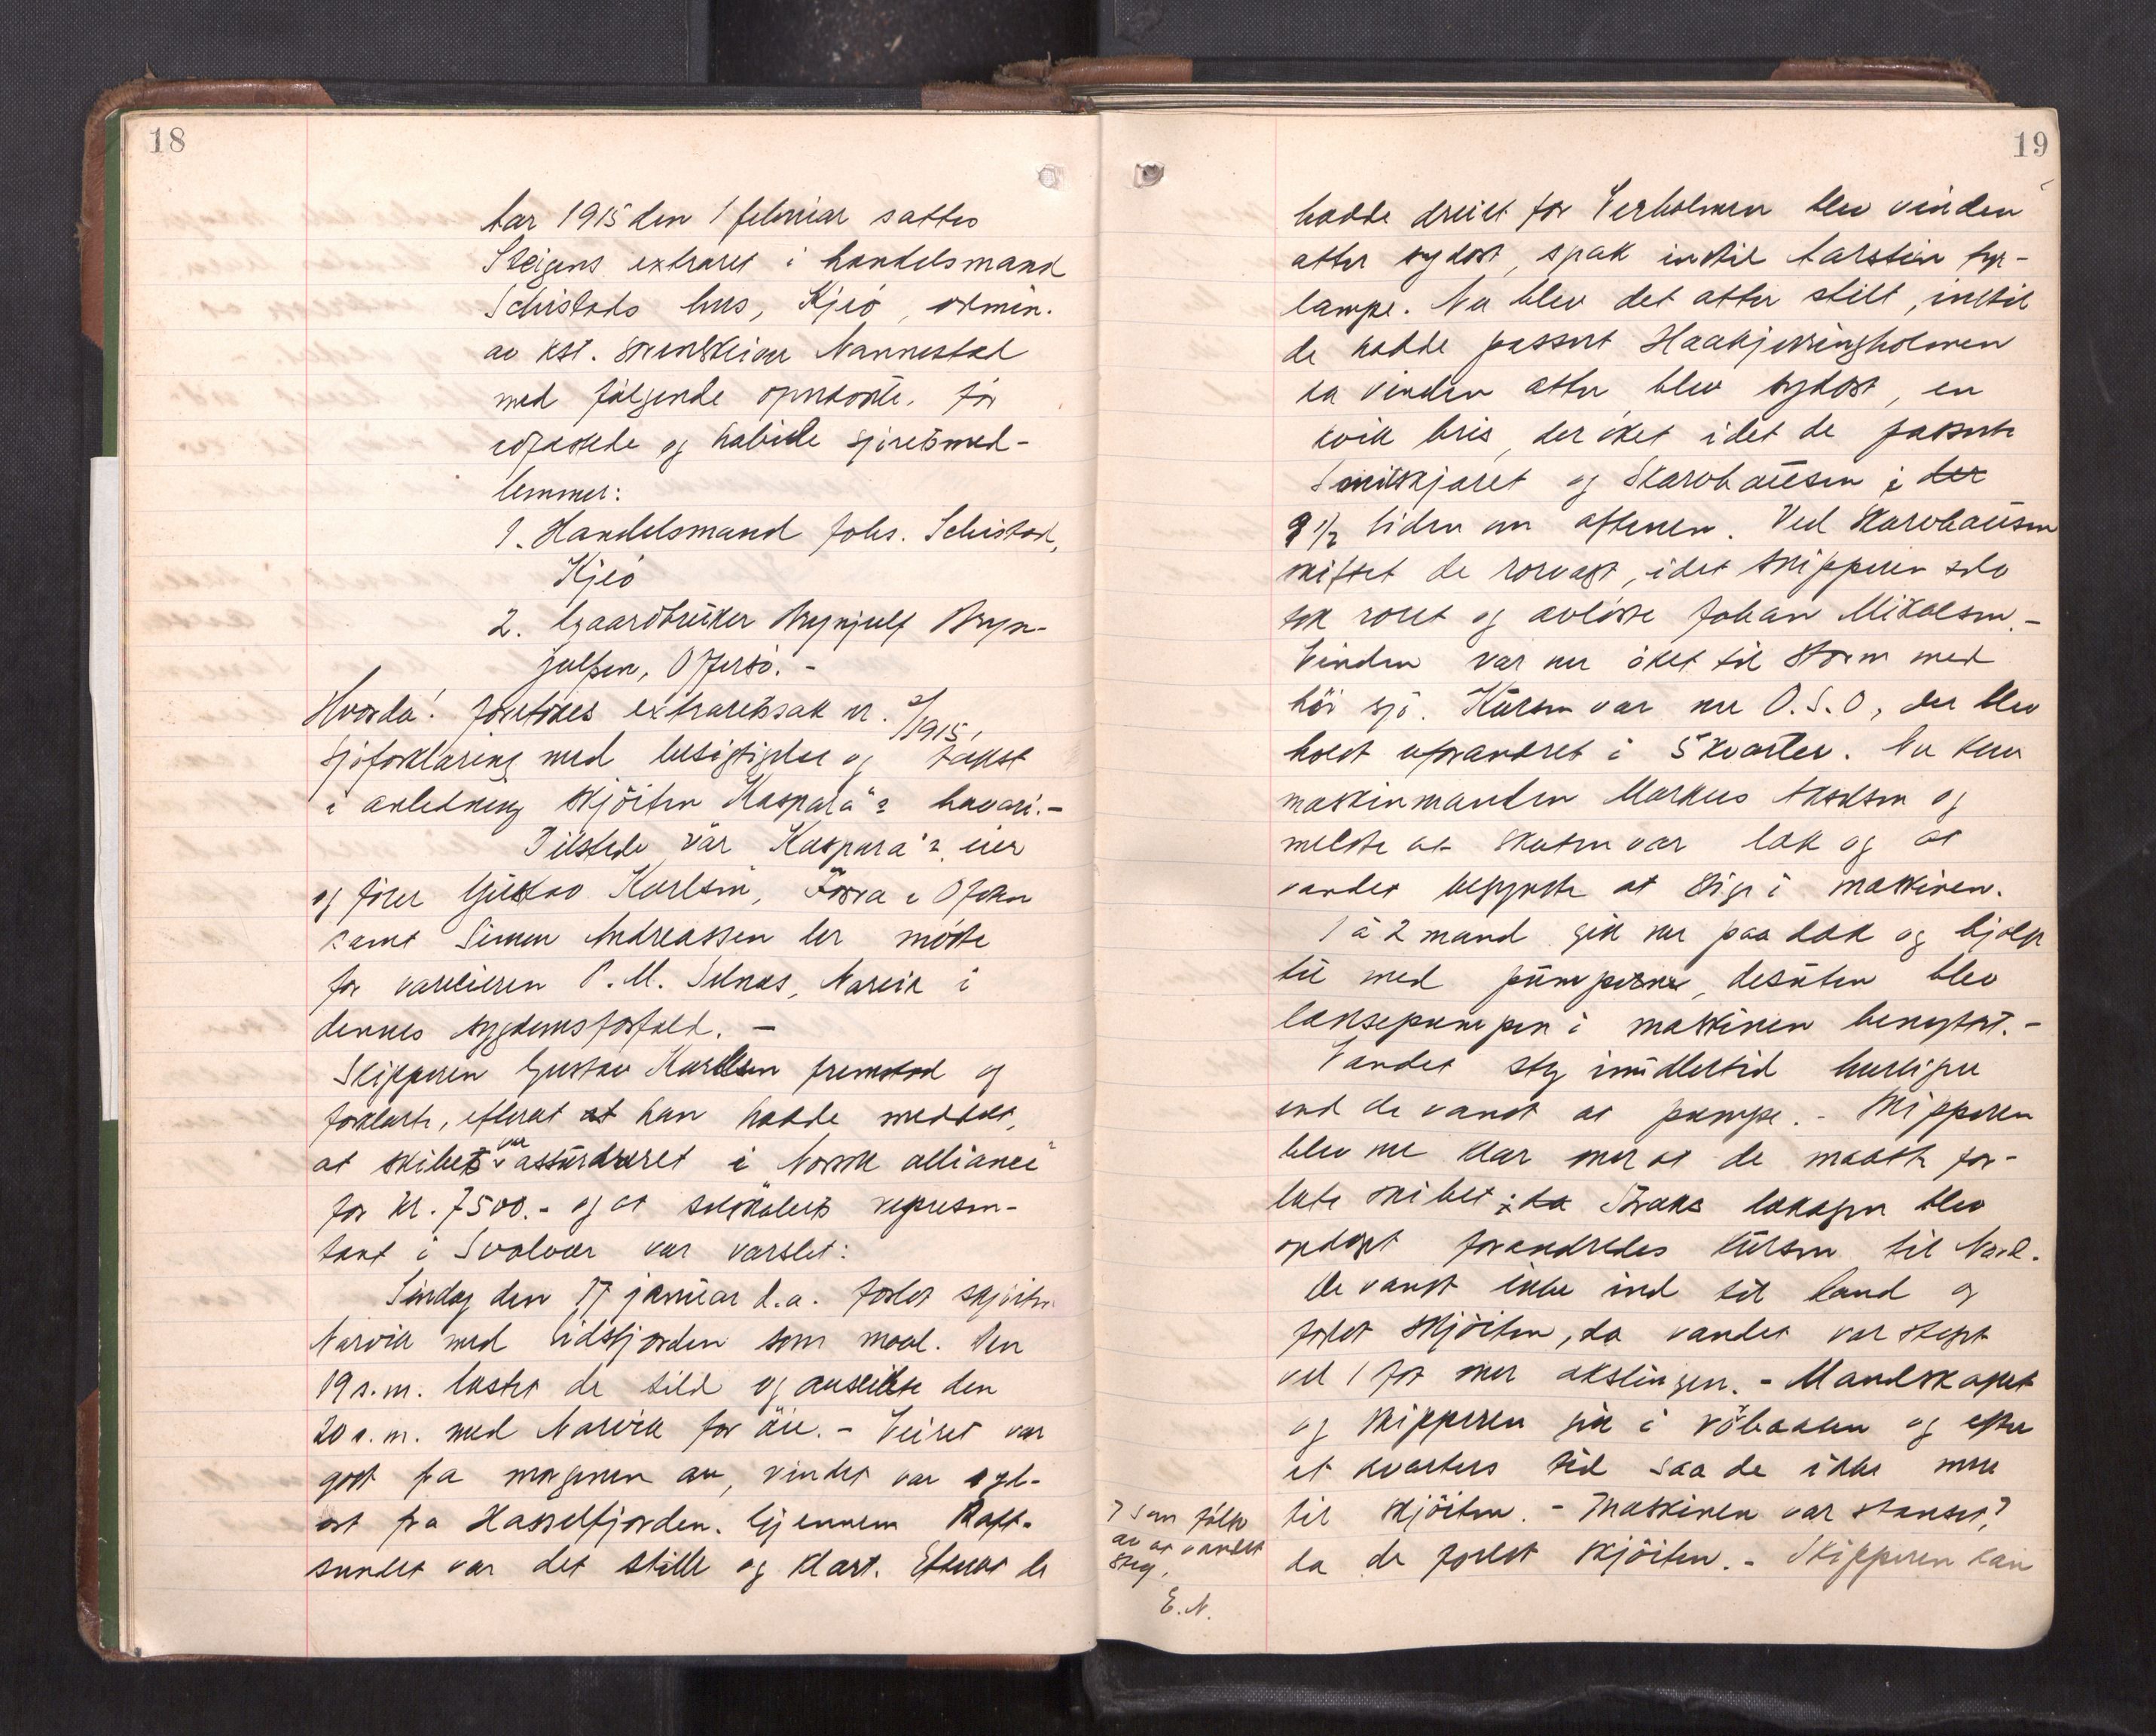 18
Aar 1915 den 1 februar sattes
Steigens extraret i handelsmand
Schistads hus, Kjeö, admin.
av kst. sorenskriver Nannestad
med følgende opnævnte, for
utfasede og habile sjöretsmed-
lemmer:
1. Handelsmand Johs. Schistad,
Kjeö
2. Gaardbruker Brynjulf Bryn-
julfsen, Offersö. -
Hvorda! foretokes extraretssak nr. 2/1915,
sjöforklaring med besigtigelse og takst
i anledning skjöiten "Kaspara"s havari. -
Tilstede var "Kaspara"s eier
og förer Gustav Karlsen, Forra i Ofoten
samt Simon Andreassen der mötte
for vareeieren P. M. Selnes, Narvik i
dennes sygdomsforfald. -
Skipperen Gustav Karlsen fremstod og
forklarte, efterat at han hadde meddelt,
at skibet var assureret i "Norsk alliance"
for kr. 7500.- og at selskabets represen-
tant i Svolvær var varslet:
Söndag den 17 januar d.a. forlot skjöiten
Narvik med Eidsfjorden som maal. Den
19 s.m. lastet de sild og anseilte den
20 s.m. med Narvik for öie. - Veiret var
godt fra morgenen av, vinden var syd-
ost fra Hasselfjorden. Gjennem Raft-
sundet var det stille og klart. Efterat de
19
hadde dreiet for Verholmen blev vinden
atter sydost, spak indtil Aarstein fyr-
lampe. Nu blev det atter stilt, indtil
de hadde passert Haakjerringholmen
da vinden atter blev sydost, en
kvik bris, der öket idet de passerte
Smitskjæret og Skarvhausen i der
9 1/2 tiden om aftenen. Ved Skarvhausen
skiftet de rorvagt, idet skipperen selv
tok roret og avlöste Johan Mikalsen. -
Vinden var nu öket til storm med
höi sjö. Kursen var nu O.S.O, der blev
holdt uforandret i 5 kvarter. Nu kom
maskinmanden Markus Akselsen og
meldte at skuten var læk og at
vandet begyndte at stige i maskinen.
1 à 2 mand gik nu paa dæk og hjalp
til med pumperne, desuten blev
lænsepumpen i maskinen benyttet. -
Vandet steg imidlertid hurtigere
end de vandt at pumpe. - Skipperen
blev nu klar over at de maatte for-
late skibet; da Straks lækagen blev
opdaget forandredes kursen til Nord.
De vandt ikke ind til land og
forlot skjöiten, da vandet var steget
vel 1 fot over akslingen. - Mandskapet
og skipperen gik i robaaten og efter
et kvarters tid saa de ikke mere
til skjöiten. - Maskinen var stanset,
da de forlot skjöiten. - Skipperen kan
som fölge
av at vandet
steg.
E.N.